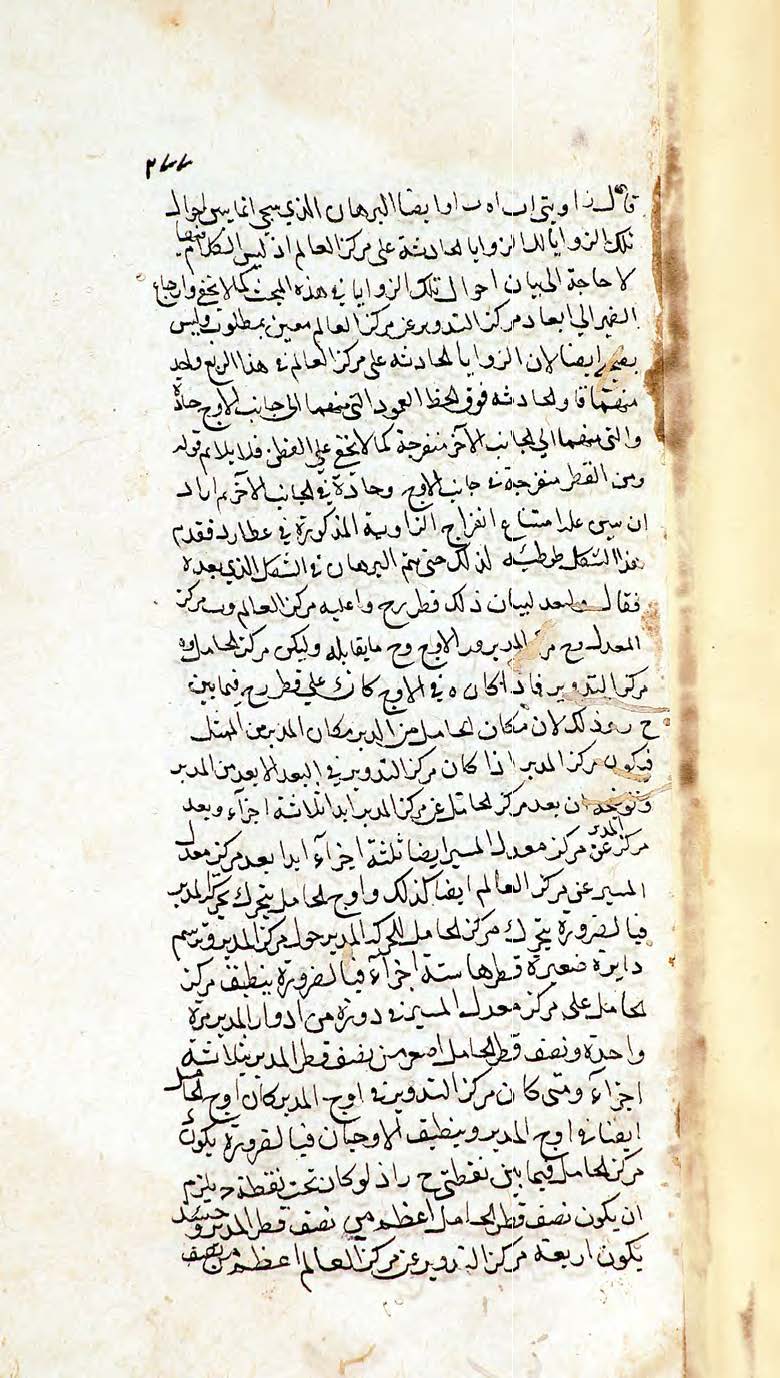 ٢٧٧
قال زاويتى اب اه ب او ايضا البرهان الذي سيجئ انما يبين احوال
تلك الزوايا لا الزوايا الحادثة على مركز العالم اذ ليس الكلام فيها
لا حاجة الى بيان احوال تلك الزوايا في هذه المبحث كما لا يخفى وارجاع
الضمير الى ابعاد مركز التدوير عن مركز العالم معين بمطلوب وليس
بصحيح ايضا لان الزوايا الحادثة على مركز العالم في هذا الربع واحد
منهما والحادثة فوق الخط العمود التي منهما الى جانب الاوج حادة
والتى منهما الي الجانب الآخر منفرجة كما لا يخفى على الفطن فلا يلائم قوله
ومن القطر منفرجة في جانب الاوج وحادة في الجانب الآخر ثم اراد
ان يبين على امتناع انفراج الزاوية المذكورة في عطارد فقدم
هذا الشكل توطئة لذلك حتى يتم البرهان في الشكل الذي بعده
فقال وليعد لبيان ذلك قطر رح و اعليه مركز العالم وب مركز
المعدل وح مركز المدير ور الاوج وح ما يقابله وليكن مركز الحامل وه
مركز التدوير فاذا كان ه في الاوج كان ك على قطر رح فيما بين
ح ر وذلك لان مكان الحامل من المدير مكان المدير من الممثل
فيكون مركز المدير اذا كان مركز التدوير في البعد الابعد من المدير
وتوضيحه ان بعد مركز الحامل عن مركز المدير ابدا ثلاثة اجزاء وبعد
مركز المدير عن مركز معدل المسير ايضا ثلثة اجزاء ابدا بعد مركز معدل
المسير عن مركز العالم ايضا كذلك واوج الحامل يتحرك بحركة المدير
فبالضرورة يتحرك مركز الحامل بحركة المدير حول مركز المدير وترسم
دايرة صغيرة قطرها ستة اجزاء فبالضرورة ينطبق مركز
الحامل على مركز معدل المسير في دورة من ادوار المدير مرة
واحدة ونصف قطر الحامل اصغر من نصف قطر المدير بثلاثة
اجزاء ومتى كان مركز التدوير في اوج المدير كان اوج الحامل
ايضا في اوج المدير وينطبق الاوجان فبالضرورة يكون
مركز الحامل فيما بين نقطتى ح ر اذ لو كان تحت نقطة ح يلزم
ان يكون نصف قطر الحامل اعظم من نصف قطر المدير وحينئذ
يكون اربعة مركز التدوير عن مركز العالم اعظم من نصف